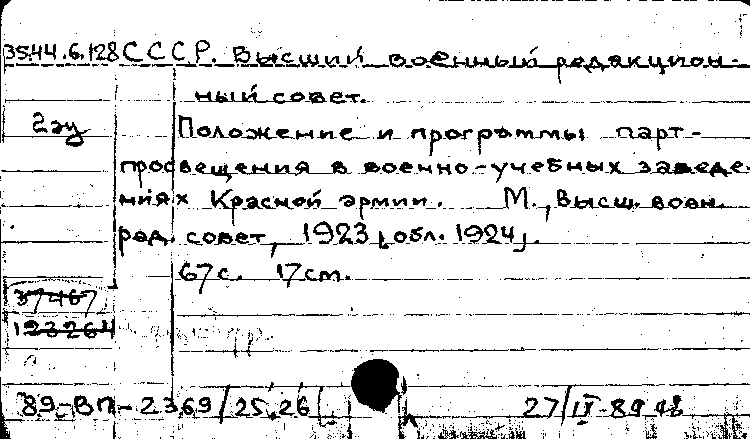 35.44.6.128 С С С Р. Высший военный редакцион-
ный совет.
2эу
Положение и программы парт-
просвещения в военно-учебных заведе-
ниях Красной армии. М., Высш. воен.
ред. совет, 1923 [обл. 1924].
67 с. 17 см.
37467
123264
89-ВП-2369/25,26
27/IV-89